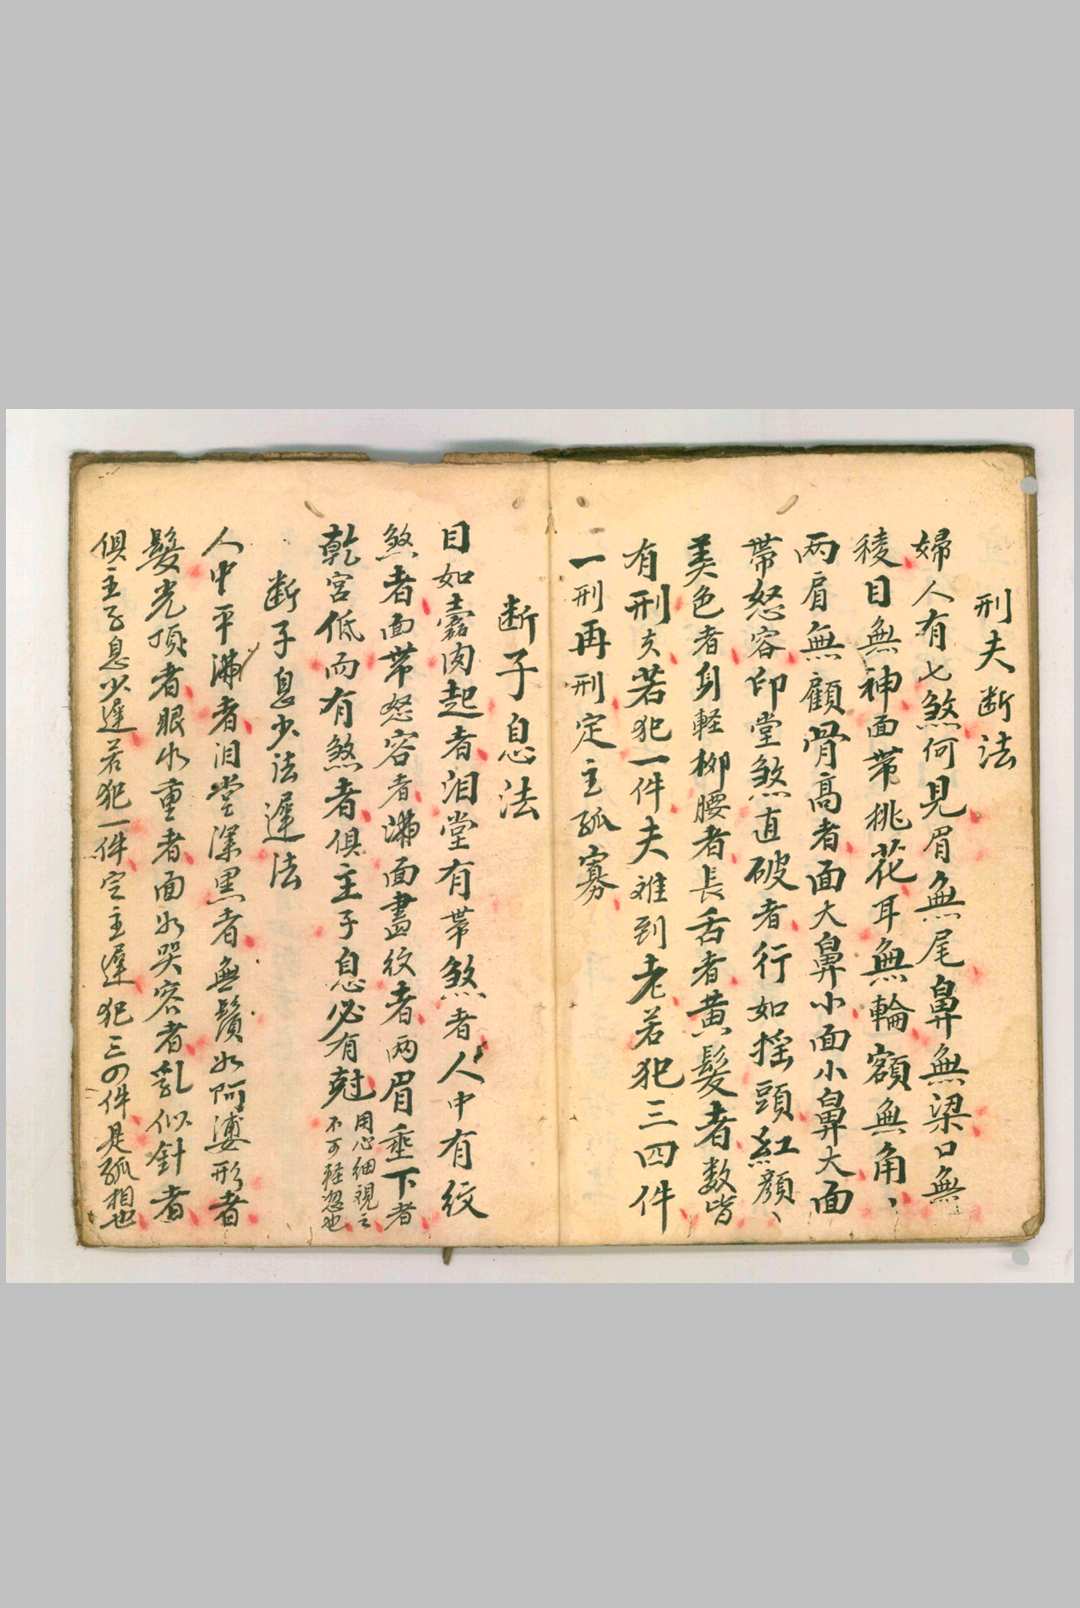 刑夫断法
婦人有七煞何見眉無尾鼻無梁口無
稜目無神面帶桃花耳無輪額無角、
两肩無顧骨高者面大鼻小面小鼻大面
帶怒容印堂煞直破者行如摇頭紅顔、
美色者身軽柳腰者長舌者黄髮者数皆
有刑夫若犯一件夫难到老若犯三四件
一刑再刑定主孤寡
断子息法
目如肉起者泪堂有帶煞者人中有紋
煞者面带怒容者满面畫纹者两眉垂下者
乾宫低而有煞者俱主子息必有尅用心細視之
不可軽忽也
断子息少法遲法
人中平满者泪堂深黑者無鬚如阿婆形者
髮光頂者眼水重者面如哭容者乳似針者
俱主子息少遲若犯一件定主遲犯三四件是孤相也